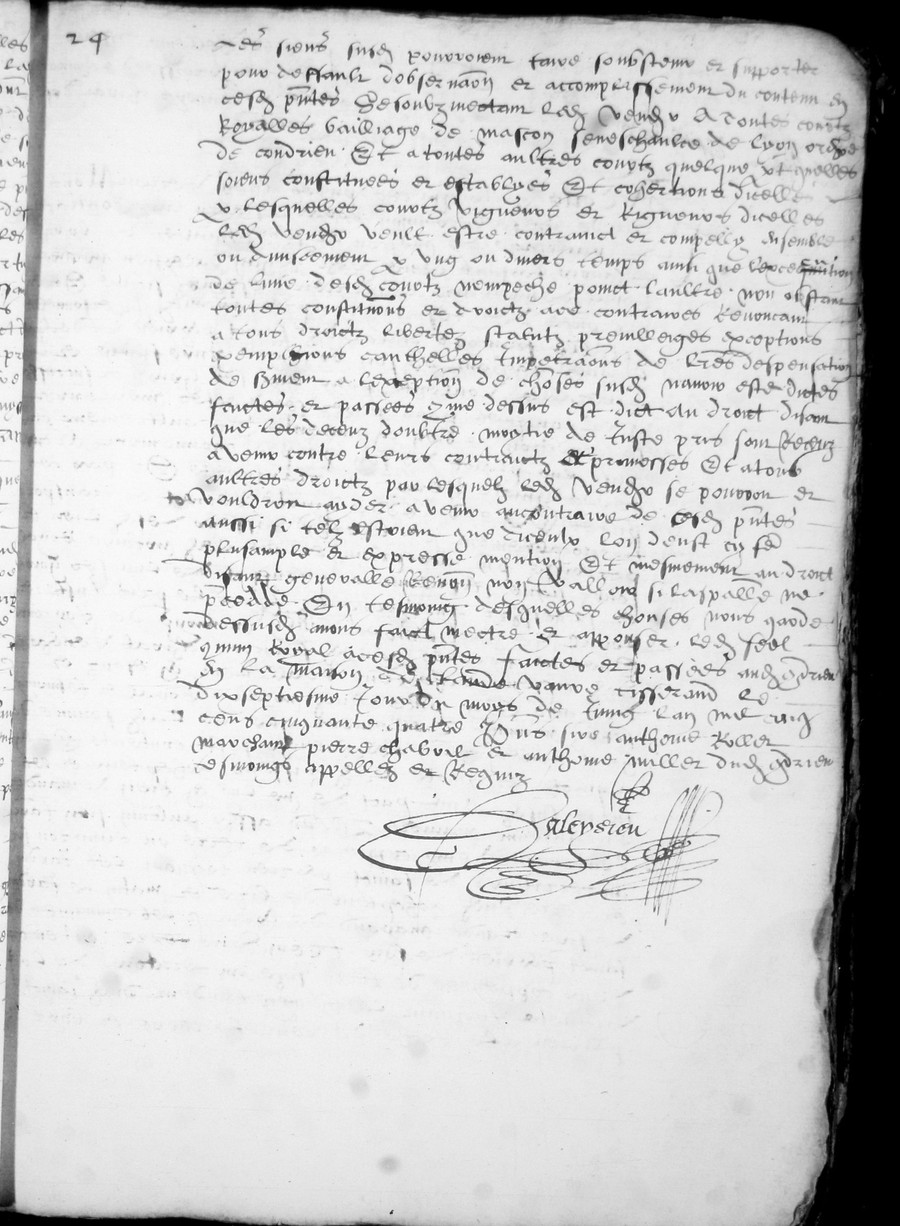 24
des siens susd pourroient faire soubstenir et supporter
pour deffault dobservaon et accomplissement du contenu en
cesd pntes se soubzmectant led vendr A toutes courtz
Royalles bailliage de mascon seneschaulcé de lyon ordre
de condrieu Et a toutes aultres courtz quelque pt quelles
soient constitueés et establyes Et cohertions dicelles
p lesquelles courtz viguers et Riguers dicelles
led vendr veult estre contrainct et compelly ensemble
ou divisement p ung ou divers temps ainsi que
de lune desd courtz nempeche poinct laultre non obstant
toutes constitutions et droictz ace contraires Renoncant
a tous droictz libertez statutz previlleiges exceptions
exemptions cauthelles Impetraons de lres despensation
de serment a lexception de choses susd navoir este dictes
faictes et passeés come dessus est dict Au droict disant
que les deceuz doultre moytie de Juste pris sont Receuz
a venir contre leurs contractz Et promesses Et a tous
aultres droictz par lesquelz led vendr se pourroit et
vouldroit aider a venir aucontraire de cesd pntes
aussi si telz estoient que diceulx lon deust cy fe
plusample et expresse mention Et mesmement au droict
disant generalle Renon non valloir si laspalle ne
precede En tesmoing desquelles choses nous garde
dessusd avons faict mectre et apposer led seel
comun Royal acesd pntes faictes et passeés aud Condrieu
En la maison de Claude tisserand le
dixseptiesme Jour du moys de Juing lan mil cinq
cens cinquante quatre Pns sire anthoine Roller
marchant pierre chabrol et anthoine miller dud Condrieu
tesmoings appellez et Requiz